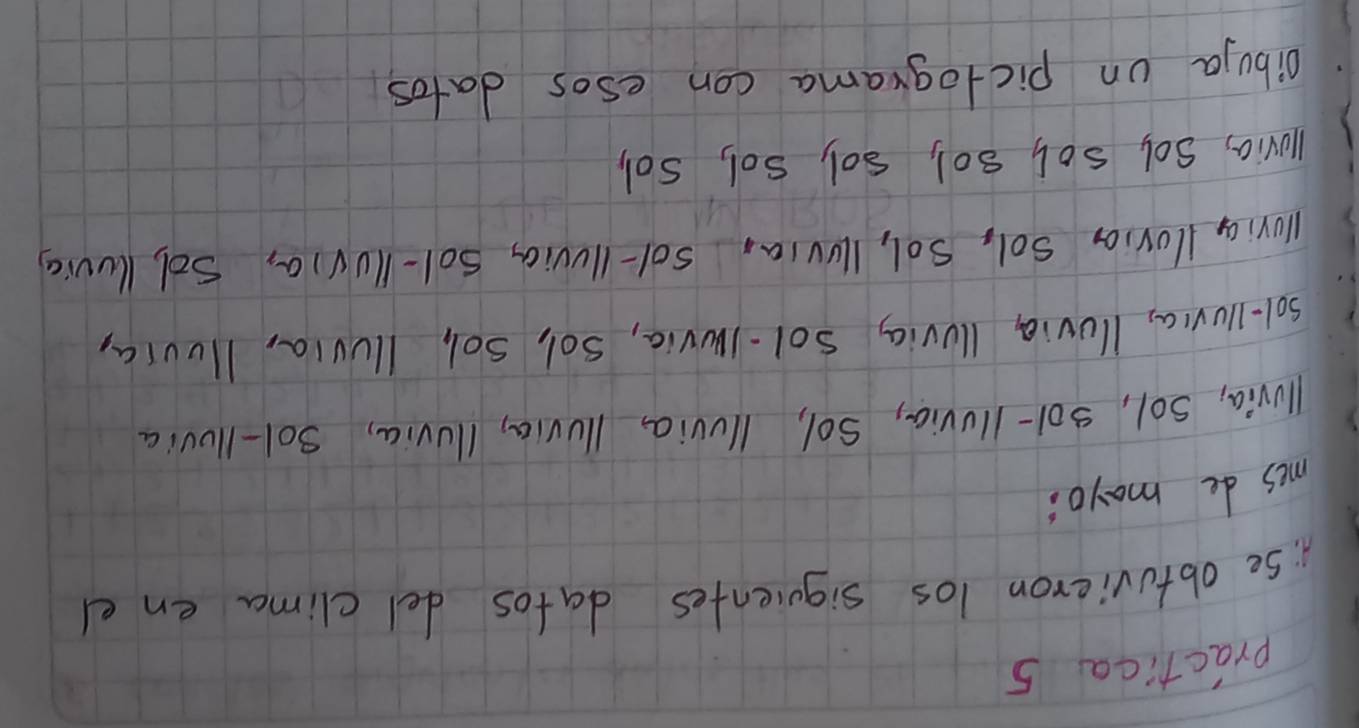 práctica 5
A: Se obtuvieron los siguientes datos del clima en el
mes de mayo:
lluvia, sol, sol-lluvia, sol, lluvia, lluvia, lluvia, sol-lluvia
sol-lluvia, lluvia, lluvia, sol-lluvia, sol, sol, lluvia, lluvia,
lluvia, lluvia, sol, sol, lluvia, sol-lluvia, sol-lluvia, sol, lluvia,
lluvia, sol, sol, sol, sol, sol, sol,
Dibuja un pictograma con esos datos